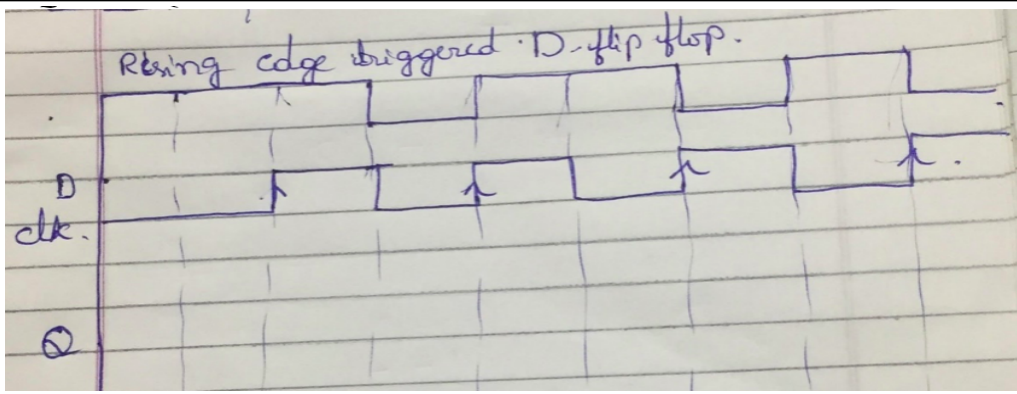 Rising edge triggered D-flip flop.
D
clk.
Q